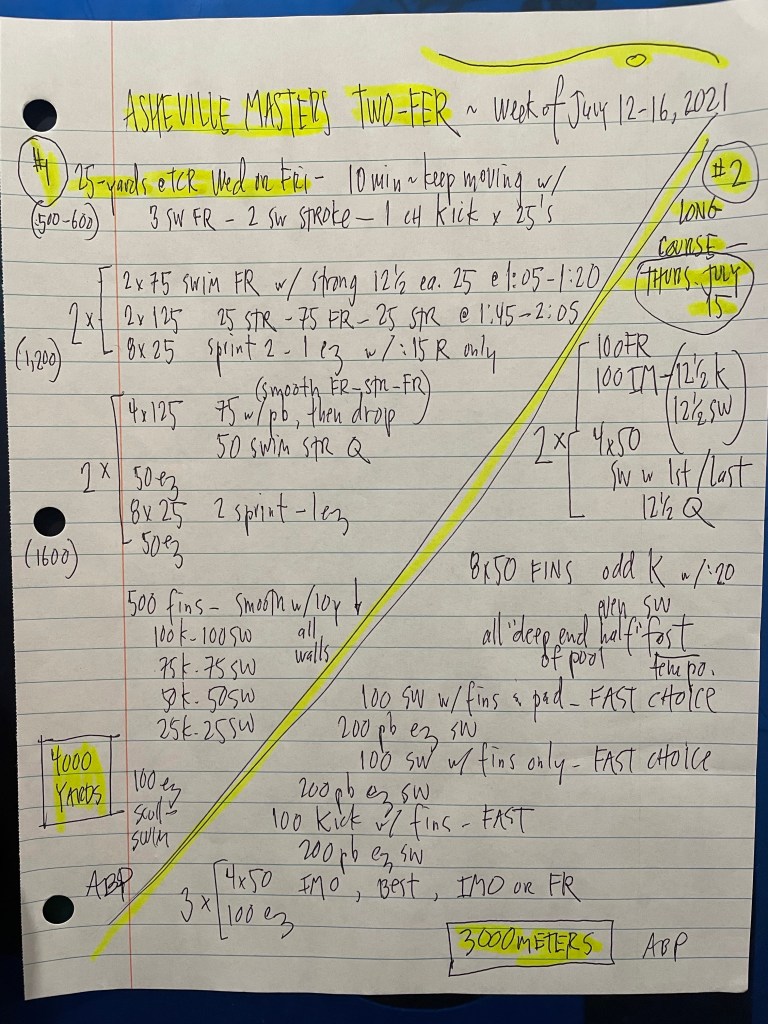 ASHEVILLE MASTERS TWO-FER ~ Week of July 12-16, 2021
#1
25-yards @TCR Wed or Fri - 10 min ~ keep moving w/
(500-600) 3 SW FR - 2 SW STROKE - 1 CH Kick x 25's
2 x
2 x 75 swim FR w/ strong 12½ ea. 25 @ 1:05-1:20
2 x 125 25 STR - 75 FR - 25 STR @ 1:45-2:05
8 x 25 sprint 2 - 1 ez w/ :15 R only
(1,200)
(smooth FR-STR-FR)
2 x
4 x 125 75 w/ pb, then drop
50 swim STR Q
50 ez
8 x 25 2 sprint - 1 ez
50 ez
(1600)
500 fins - smooth w/ 10y ↓
100k - 100 SW all
75k - 75 SW walls
50k - 50 SW
25k - 25 SW
4000
YARDS
100 ez
scull-
swim
ABP
#2
LONG
COURSE -
THURS. JULY
15
2 x
100 FR
100 IM - (12½ K
12½ SW)
4 x 50
SW w 1st / last
12½ Q
8 x 50 FINS odd K w/ :20
even SW
all "deep end half" fast
of pool tempo.
100 SW w/ fins & pad - FAST CHOICE
200 pb ez SW
100 SW w/ fins only - FAST CHOICE
200 pb ez SW
100 Kick w/ fins - FAST
200 pb ez SW
3 x
4 x 50 IMO, Best, IMO or FR
100 ez
3000 METERS ABP